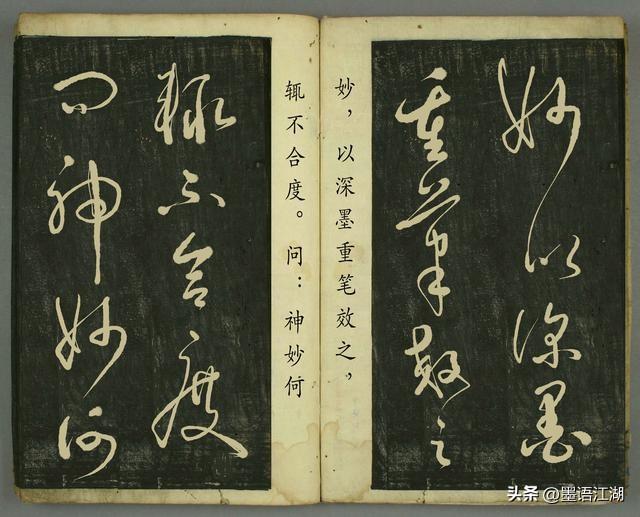 妙以深墨
重笔效之
妙，以深墨重笔效之，
辄不合度。问：神妙何
辄不合度
问神妙何
头条 @墨语江湖